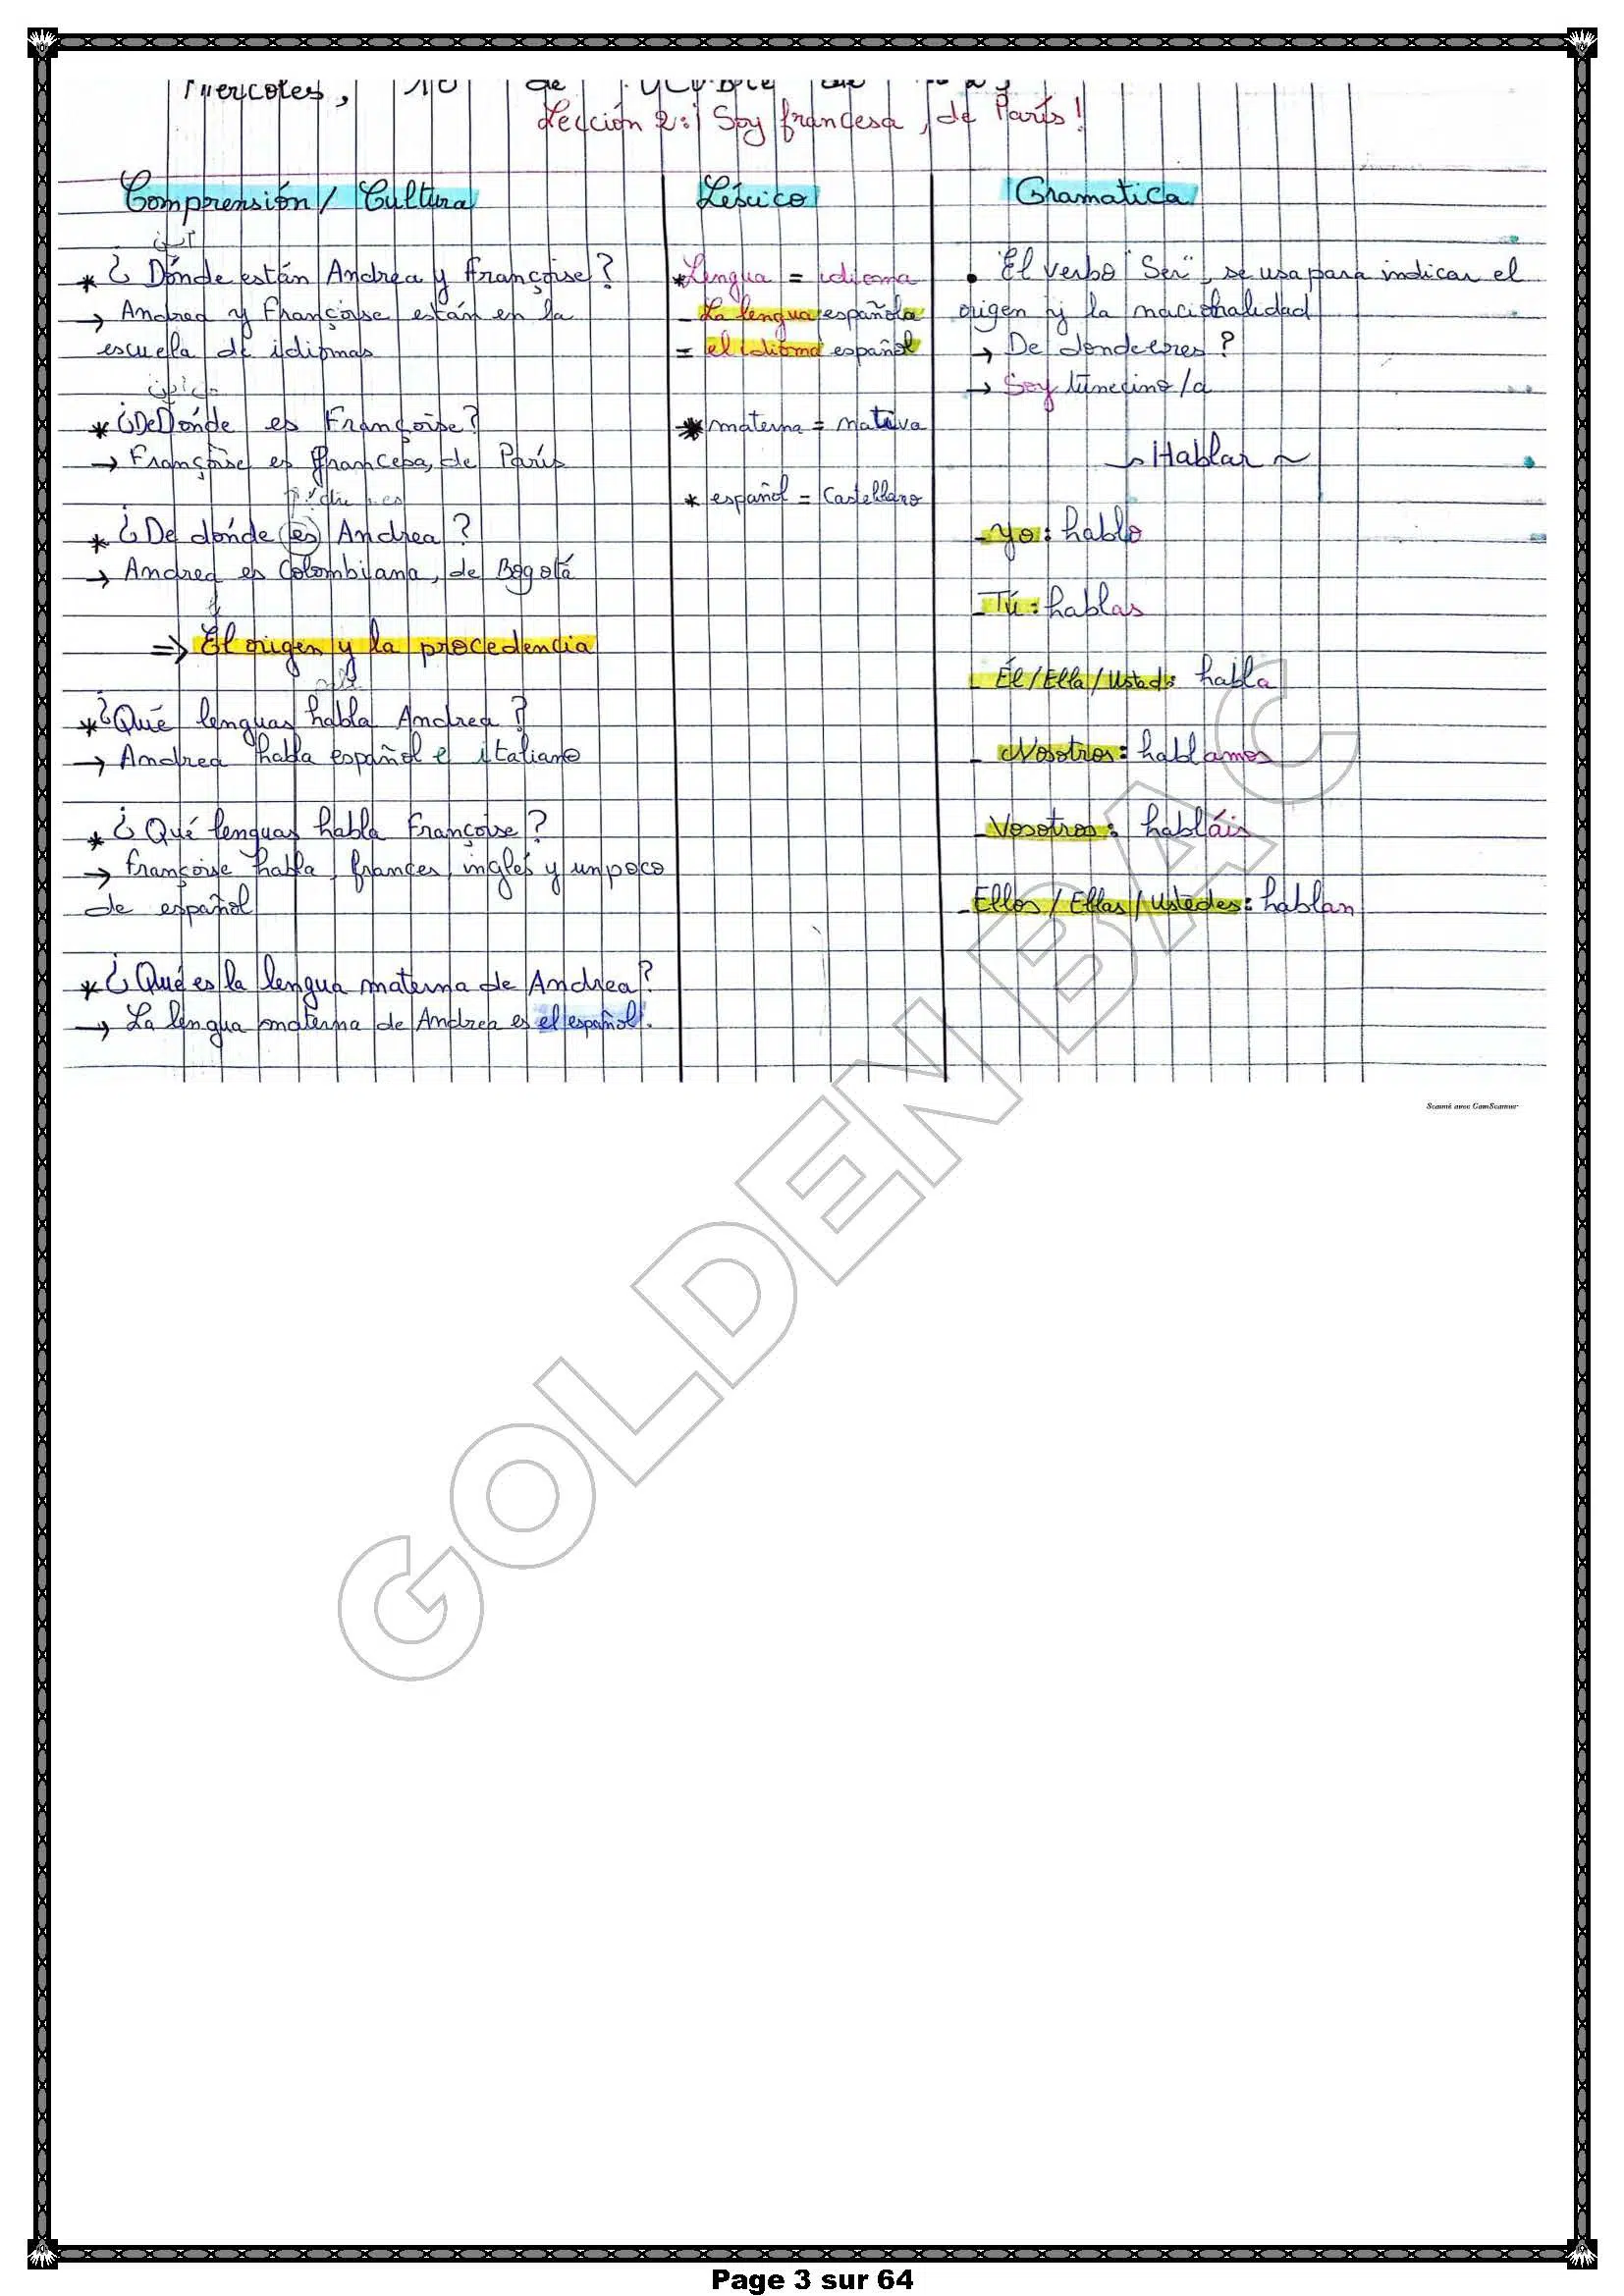 Miercoles, 10 de
Lección 2: Soy francesa, de París!
Comprensión / Cultura
أين
* ¿ Dónde están Andrea y Françoise ?
→ Andrea y Françoise están en la
escuela de idiomas
من أين
* ¿De Dónde es Françoise?
→ Françoise es francesa, de París
* ¿De dónde es Andrea ?
→ Andrea es Colombiana, de Bogotá
=> El origen y la procedencia
* ¿Qué lenguas habla Andrea ?
→ Andrea habla español e italiano
* ¿ Qué lenguas habla Françoise ?
→ Françoise habla, frances, inglés y un poco
de español
* ¿ Qué es la lengua materna de Andrea ?
→ La lengua materna de Andrea es el español.
Léxico
* Lengua = idioma
- La lengua española
= el idioma español
* materna = nativa
* español = Castellano
Gramatica
• El verbo "Ser", se usa para indicar el
origen y la nacionalidad
→ De donde eres ?
→ Soy tunecino/a
~ Hablar ~
- Yo : hablo
- Tú : hablas
- Él / Ella / Usted : habla
- Nosotros : hablamos
- Vosotros : habláis
- Ellos / Ellas / Ustedes : hablan
Scanné avec CamScanner
GOLDEN BAC
Page 3 sur 64